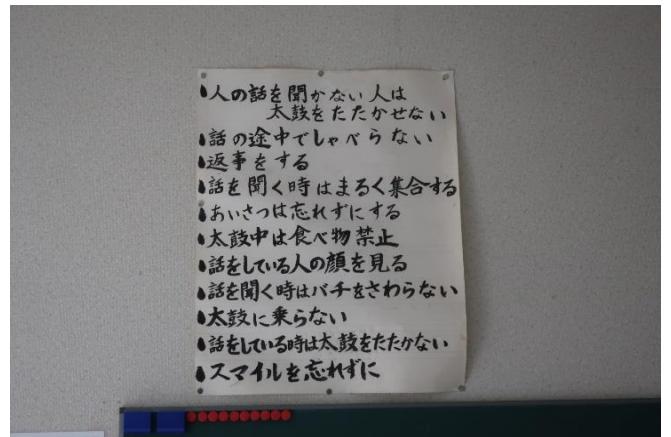 ・人の話を聞かない人は
太鼓をたたかせない
・話の途中でしゃべらない
・返事をする
・話を聞く時はまるく集合する
・あいさつは忘れずにする
・太鼓中は食べ物禁止
・話をしている人の顔を見る
・話を聞く時はバチをさわらない
・太鼓に乗らない
・話をしている時は太鼓をたたかない
・スマイルを忘れずに